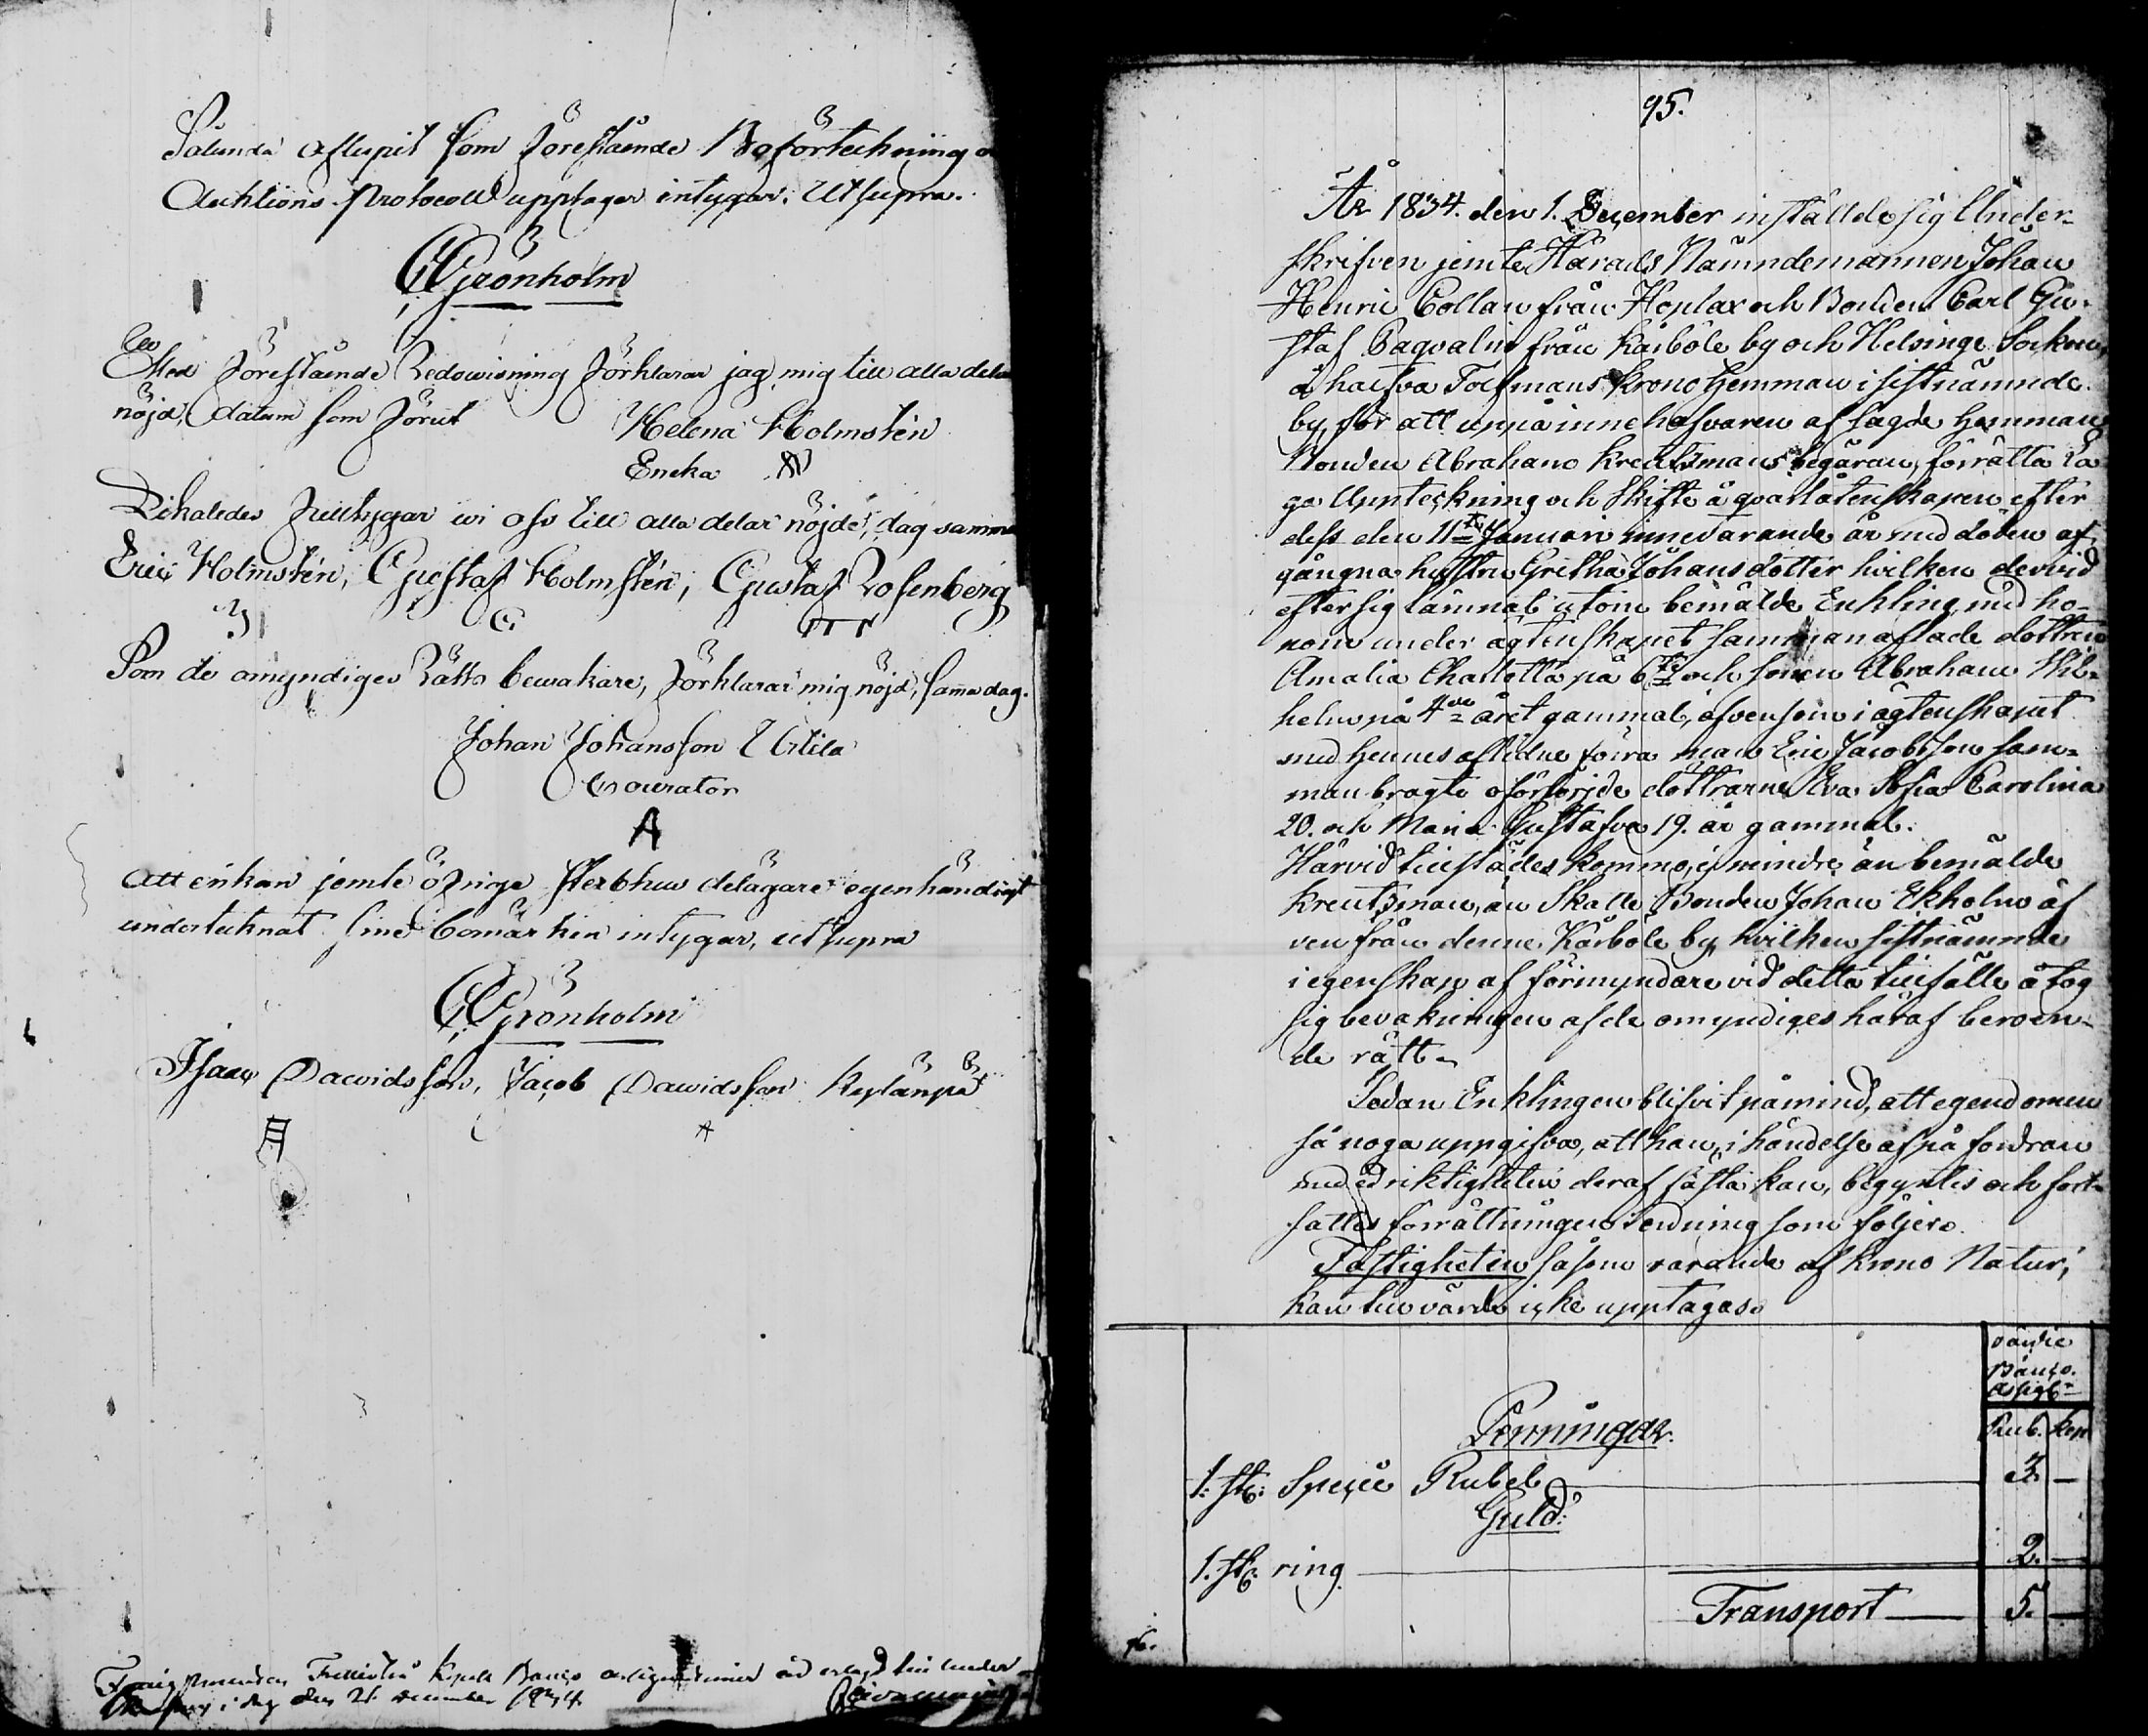 Sålunda aflupit som förestående Boförteckning o
Auktions Protocoll upptager intygar. Ut supra.
Grönholm
Med förestående Redovisning förklarar jag mig till alla dela
nöjd, datum som förut
Helena Holmstén
Encka
Likaledes fulltygar wi oss till alla delar nöjde, dag samma
Eric Holmstén, Gustaf Holmstén, Gustaf Rosenberg
Som de omyndiges Rätts bewakare, förklarar mig nöjd, samma dag.
Johan Johansson Uttila
Courator
A
Att enkan jemte öfrige sterbhus delägare egenhändigt
undertecknat sine bomärken intygar, ut supra
Grönholm
Isaac Dawidsson, Jacob Dawidsson
Banco
i dag den 21 December 1834
95.
År 1834. den 1. December instälde sig Under-
skrifven jemte Härads Nämndemannen Johan
Henric Collan från Hoplax och Bonden Carl Gu-
staf Paqvalin från Kårböle by och Helsinge Socken,
å halfva Tolfmans Krono Hemman i sistnämnde
by, för att uppå innehafvaren af sagde Hemman
Bonden Abraham Kreutsmans begäran, förrätta La-
ga Upteckning och Skifte å qvarlåtenskapen efter
dess den 11te Januari innevarande år med döden af-
gångna hustru Gretha Johansdotter hvilken dervid
efter sig lämnat utom bemälde Enkling, med ho-
nom under ägtenskapet sammanaflade dottren
Amalia Charlotta på 6te och sonen Abraham Wil-
helm på 4de året gammal, äfvensom i ägtenskapet
med hennes aflidne förra man Eric Jacobsson sam-
manbragte oförsörjde döttrarne Eva Sofia Carolina
20. och Maria Gustafva 19. år gammal.
Härvid tillstädes kommo, ej mindre än bemälde
Kreutsman, än Skatte Bonden Johan Ekholm äf
ven från denne Kårböle by, hvilken sistnämnde
i egenskap af förmyndare vid detta tillfälle åtog
sig bevakningen af de omyndiges häraf beroen-
de rätt.
Sedan Enklingen blifvit påmind, att egendomen
så noga uppgifva, att han, i händelse af påfordran
med ed riktigheten deraf fästa kan, begyntes och fort-
sattes förrättningen i ordning som följer.
Fastigheten såsom varande af Krono Natur,
kan till värde icke upptagas.
Värdie
Banco.
Assigt.
Rub. Kop
Penningar.
1. st. Specie Rubel 3. —
Guld.
1. st. ring 2. —
Transport 5. —